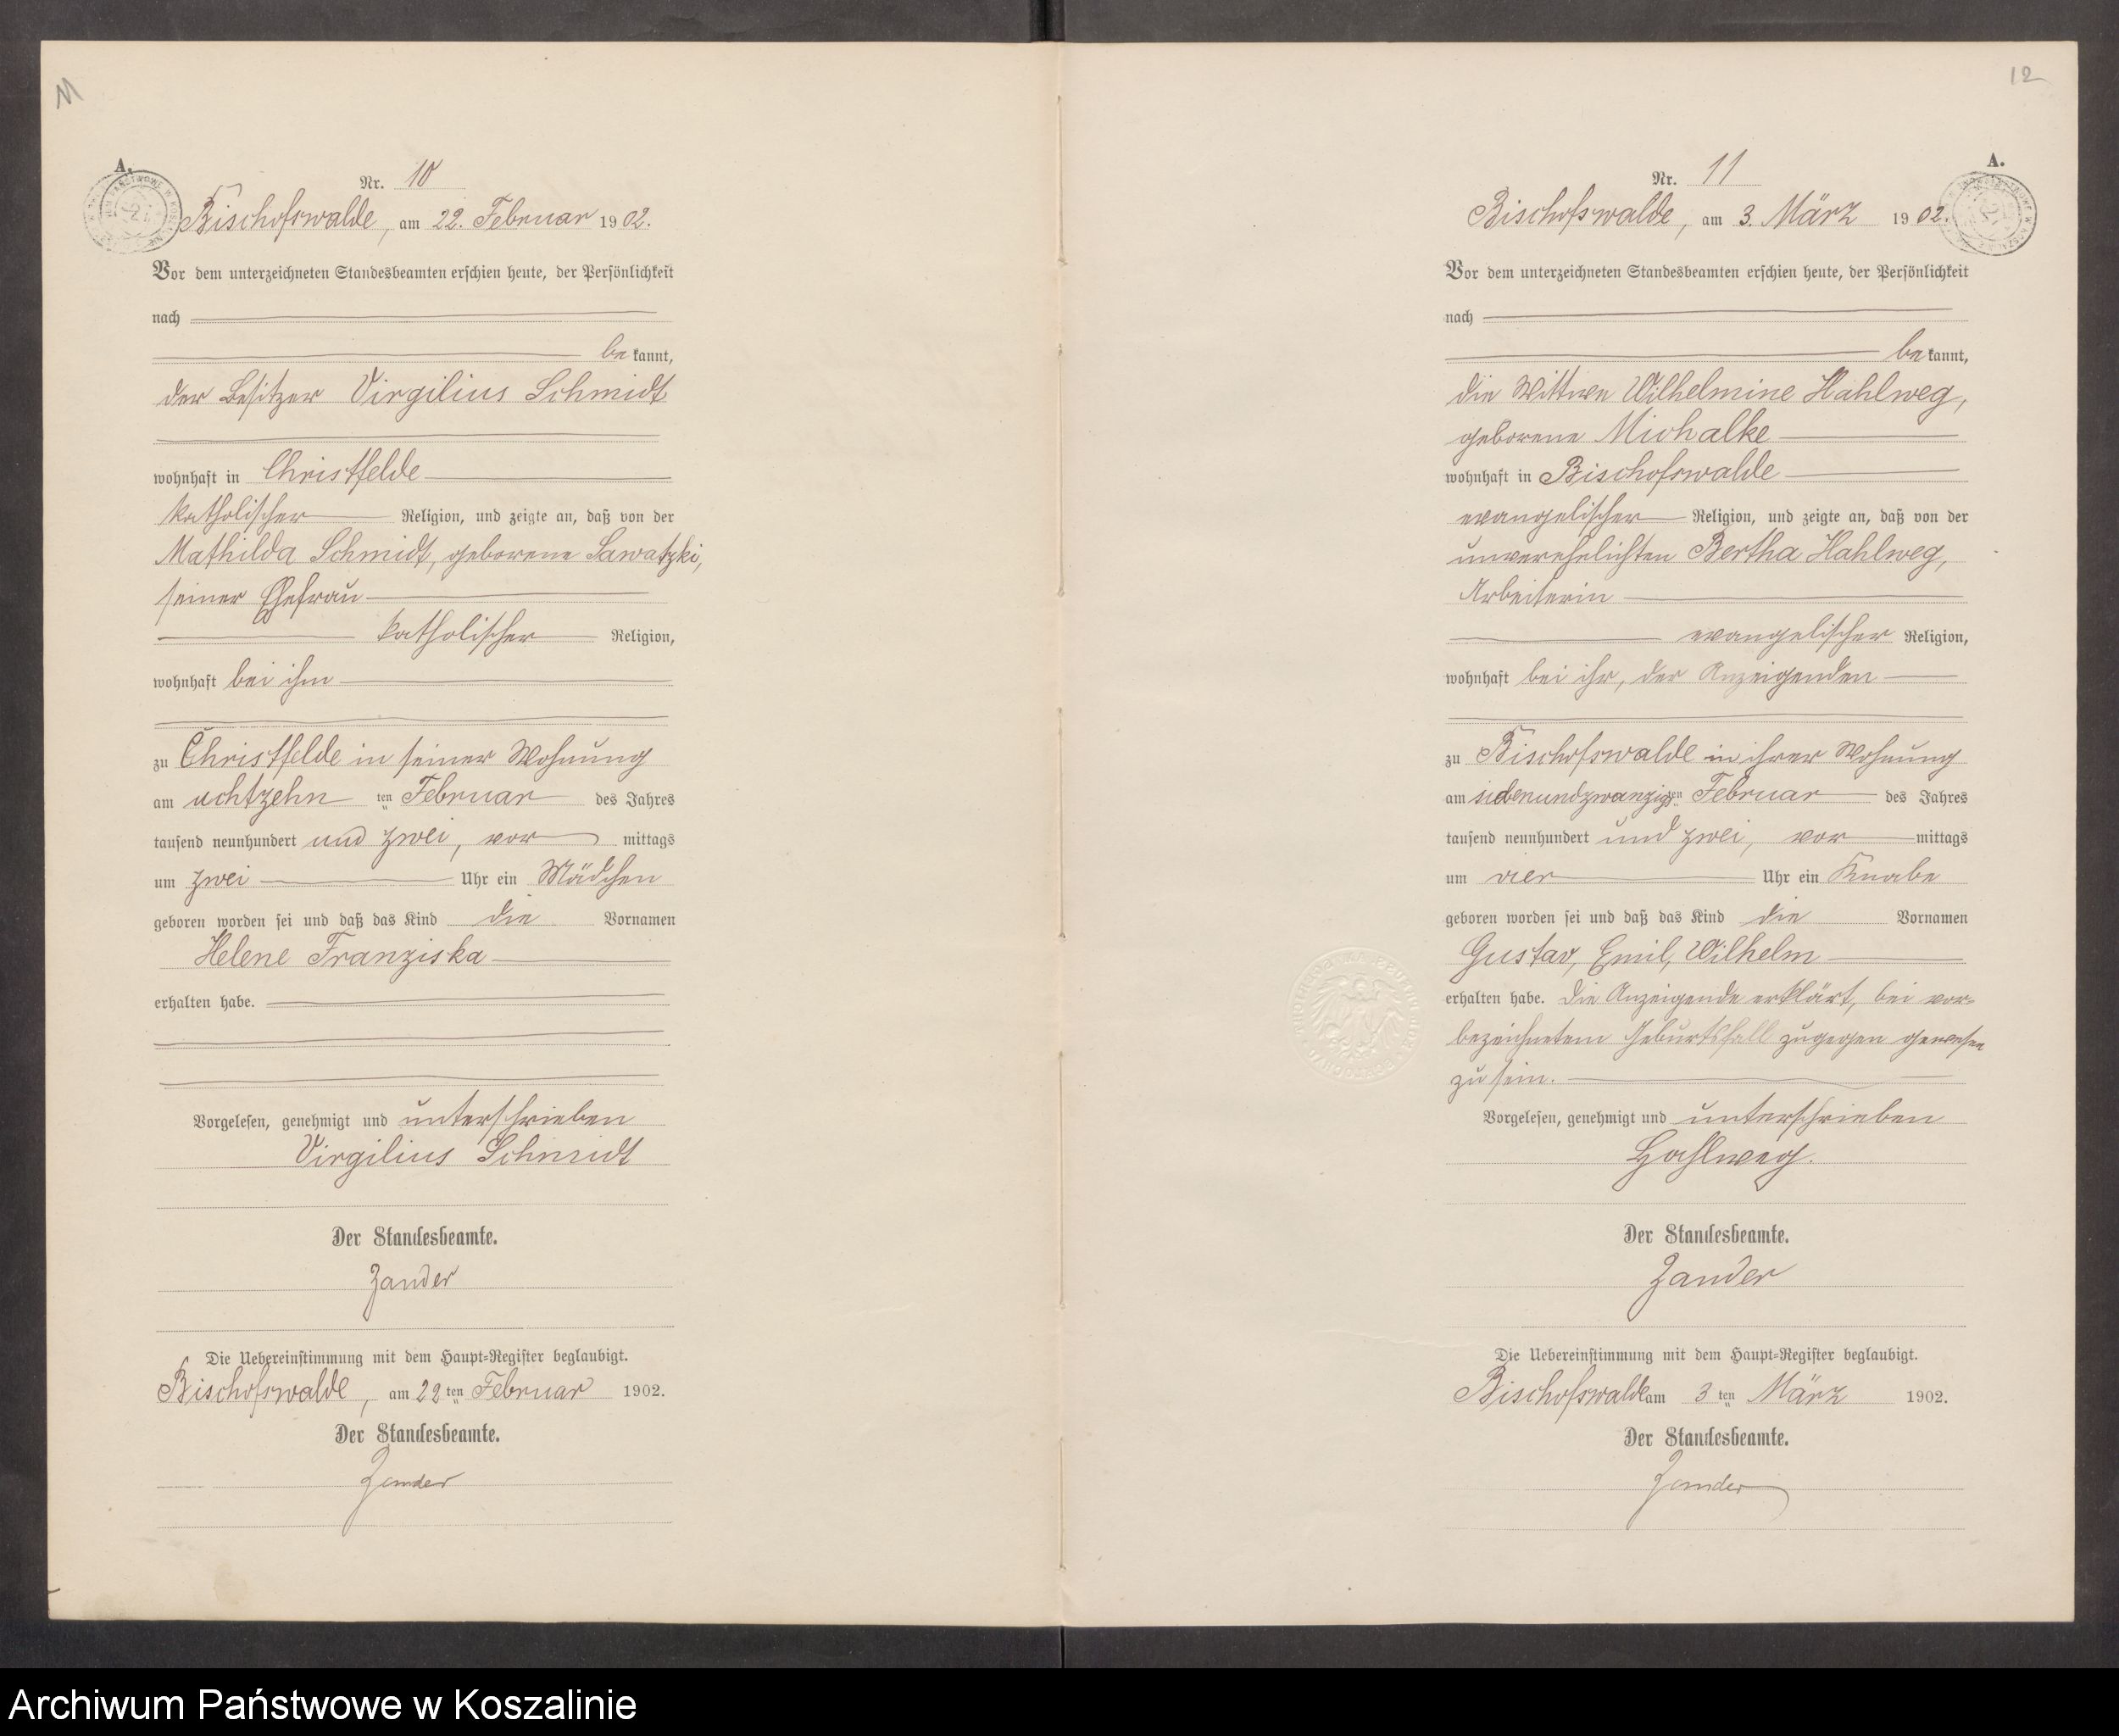 11
A.
Nr. 10
Bischofswalde, am 22. Februar 1902.
Vor dem unterzeichneten Standesbeamten erschien heute, der Persönlichkeit
nach
bekannt,
der Besitzer Virgilius Schmidt
wohnhaft in Christfelde
katholischer Religion, und zeigte an, daß von der
Mathilda Schmidt, geborene Sawatzki,
seiner Ehefrau
katholischer Religion,
wohnhaft bei ihm
zu Christfelde in seiner Wohnung
am achtzehn ten Februar des Jahres
tausend neunhundert und zwei, vor mittags
um zwei Uhr ein Mädchen
geboren worden sei und daß das Kind die Vornamen
Helene Franziska
erhalten habe.
Vorgelesen, genehmigt und unterschrieben
Virgilius Schmidt
Der Standesbeamte.
Zander
Die Uebereinstimmung mit dem Haupt=Register beglaubigt.
Bischofswalde, am 22 ten Februar 1902.
Der Standesbeamte.
Zander
12
A.
Nr. 11
Bischofswalde, am 3. März 1902.
Vor dem unterzeichneten Standesbeamten erschien heute, der Persönlichkeit
nach
bekannt,
die Wittwe Wilhelmine Hahlweg,
geborene Michalke
wohnhaft in Bischofswalde
evangelischer Religion, und zeigte an, daß von der
unverehelichten Bertha Hahlweg,
Arbeiterin
evangelischer Religion,
wohnhaft bei ihr, der Anzeigenden
zu Bischofswalde in ihrer Wohnung
am siebenundzwanzigsten Februar des Jahres
tausend neunhundert und zwei, vor mittags
um vier Uhr ein Knabe
geboren worden sei und daß das Kind die Vornamen
Gustav, Emil, Wilhelm
erhalten habe. Die Anzeigende erklärt, bei vor=
bezeichnetem Geburtsfall zugegen gewesen
zu sein.
Vorgelesen, genehmigt und unterschrieben
Hahlweg.
Der Standesbeamte.
Zander
Die Uebereinstimmung mit dem Haupt=Register beglaubigt.
Bischofswalde am 3 ten März 1902.
Der Standesbeamte.
Zander
Archiwum Państwowe w Koszalinie